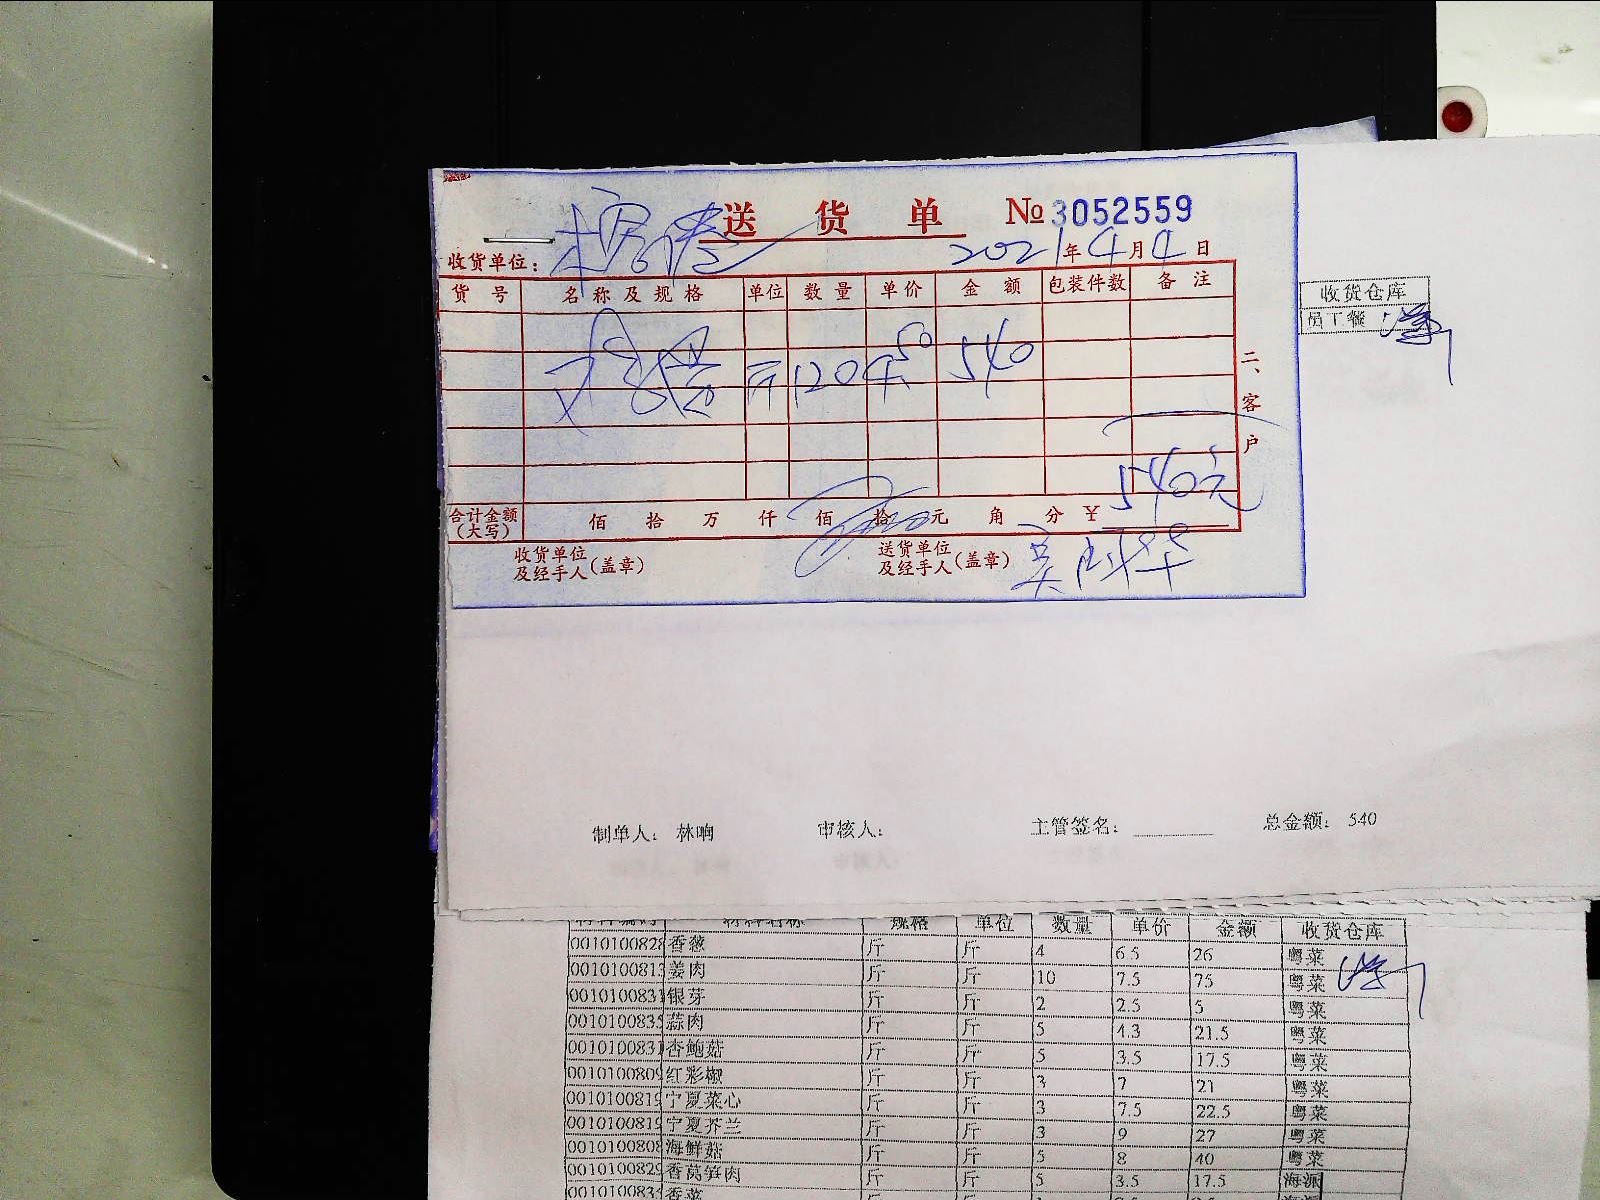 送货单 No 3052559
收货单位: 2021年4月4日
货号 名称及规格 单位 数量 单价 金额 包装件数 备注
斤 120 4.50 540
二、客户
540元
合计金额(大写) 佰 拾 万 仟 佰 拾 元 角 分 ¥
收货单位及经手人(盖章) 送货单位及经手人(盖章)
收货仓库
员工餐
制单人: 林响 审核人: 主管签名: 总金额: 540
规格 单位 数量 单价 金额 收货仓库
0010100828 香葱 斤 斤 4 6.5 26 粤菜
0010100813 姜肉 斤 斤 10 7.5 75 粤菜
001010083 银芽 斤 斤 2 2.5 5 粤菜
001010083 蒜肉 斤 斤 5 4.3 21.5 粤菜
001010083 杏鲍菇 斤 斤 5 3.5 17.5 粤菜
0010100809 红彩椒 斤 斤 3 7 21 粤菜
001010081 宁夏菜心 斤 斤 3 7.5 22.5 粤菜
001010081 宁夏芥兰 斤 斤 3 9 27 粤菜
0010100808 海鲜菇 斤 斤 5 8 40 粤菜
001010082 香莴笋肉 斤 斤 5 3.5 17.5 海派